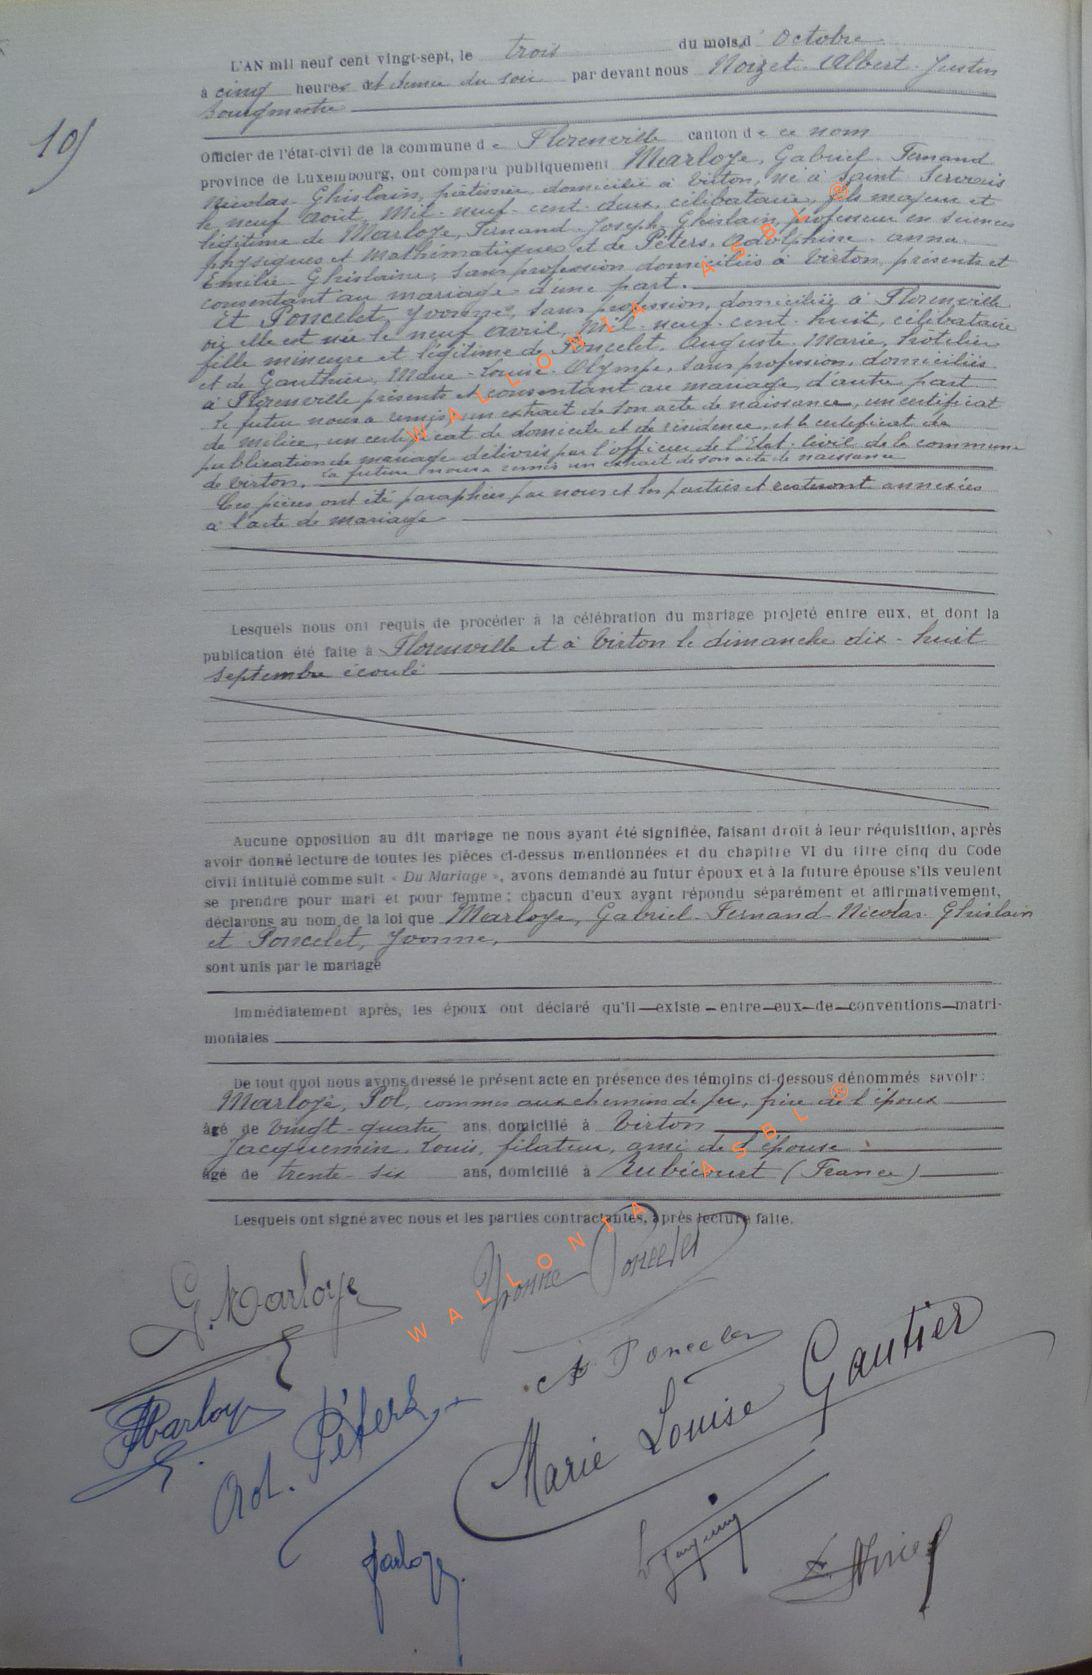 L'AN mil neuf cent vingt-sept, le trois du mois d' Octobre
à cinq heures et demie du soir par devant nous Noizet Albert Justin
bourgmestre
10)
Officier de l'état-civil de la commune de Florenville canton de ce nom
province de Luxembourg, ont comparu publiquement Marloye, Gabriel Fernand
Nicolas Ghislain, pâtissier, domicilié à Virton, né à Saint Servais
le neuf Août, Mil neuf cent deux, célibataire, fils majeur et
légitime de Marloye, Fernand Joseph Ghislain, professeur en sciences
physiques et mathématiques et de Péters, Adolphine Anna
Emilie Ghislaine, sans profession domiciliés à Virton, présents et
consentant au mariage d'une part.
Et Poncelet, Yvonne, sans profession, domiciliée à Florenville
où elle est née le neuf Avril, Mil neuf cent huit, célibataire
fille mineure et légitime de Poncelet, Auguste Marie, hôtelier
et de Gauthier, Marie-Louise Olympe, sans profession, domiciliés
à Florenville présents et consentant au mariage, d'autre part
Le futur nous a remis un extrait de son acte de naissance, un certificat
de milice, un certificat de domicile et de résidence, et le certificat de
publication de mariage délivrés par l'officier de l'Etat-Civil de la commune
de Virton. La future nous a remis un extrait de son acte de naissance
Ces pièces ont été paraphées par nous et les parties et resteront annexées
à l'acte de mariage
Lesquels nous ont requis de procéder à la célébration du mariage projeté entre eux, et dont la
publication été faite à Florenville et à Virton le dimanche dix-huit
septembre écoulé
Aucune opposition au dit mariage ne nous ayant été signifiée, faisant droit à leur réquisition, après
avoir donné lecture de toutes les pièces ci-dessus mentionnées et du chapitre VI du titre cinq du Code
civil intitulé comme suit « Du Mariage », avons demandé au futur époux et à la future épouse s'ils veulent
se prendre pour mari et pour femme : chacun d'eux ayant répondu séparément et affirmativement,
déclarons au nom de la loi que Marloye, Gabriel Fernand Nicolas Ghislain
et Poncelet, Yvonne,
sont unis par le mariage
Immédiatement après, les époux ont déclaré qu'il existe entre eux de conventions matri-
moniales
De tout quoi nous avons dressé le présent acte en présence des témoins ci-dessous dénommés savoir :
Marloye, Pol, commis aux chemins de fer, frère de l'époux
âgé de vingt-quatre ans, domicilié à Virton
Jacquemin, Louis, filateur, ami de l'épouse
âgé de trente six ans, domicilié à Rubécourt (France)
Lesquels ont signé avec nous et les parties contractantes, après lecture faite.
G. Marloye Yvonne Poncelet
A Poncelet
Marloye Ad. Péters
Marie Louise Gautier
Marloye
WALLONIA ASBL ®
WALLONIA ASBL ®